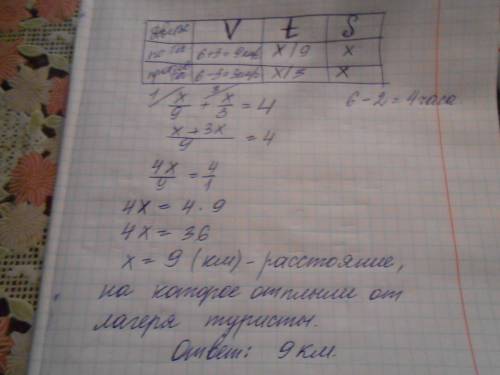 движ V t S
по теч 6+3=9км/ч x/9 x
против теч 6-3=3км/ч x/3 x
1/ x/9 + 3/ x/3 = 4
6-2=4 часа
(x+3x)/9 = 4
4x/9 = 4/1
4x = 4·9
4x = 36
x = 9 (км) - расстояние,
на которое отплыли от
лагеря туристы.
Ответ: 9 км.